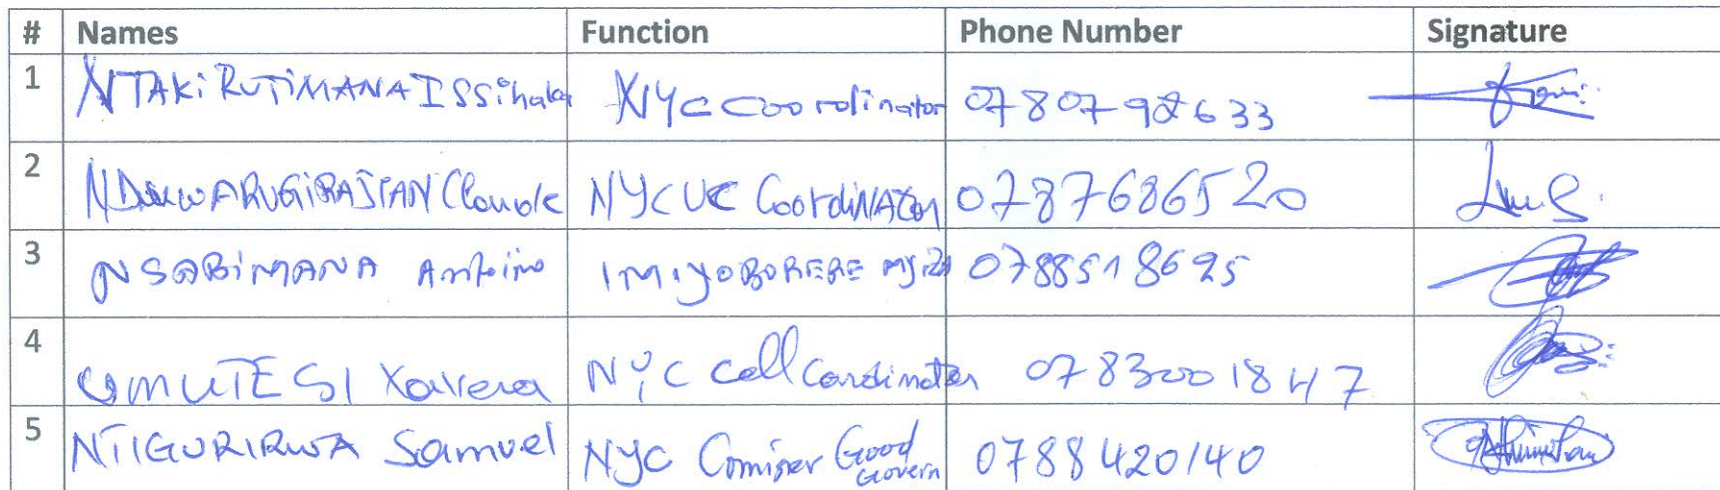 # Names Function Phone Number Signature
1 NTAKiRUTiMANA ISSihaka NYC Coordinator 0780792633
2 Claude NYC UC CoordiNATOR 0787686520
3 NSABiMANA 0788518695
4 UMUTESI Xavera NYC Cell Cordinator 0783001847
5 NTIGURIRWA Samuel NYC Comiser Good Govern 0788420140